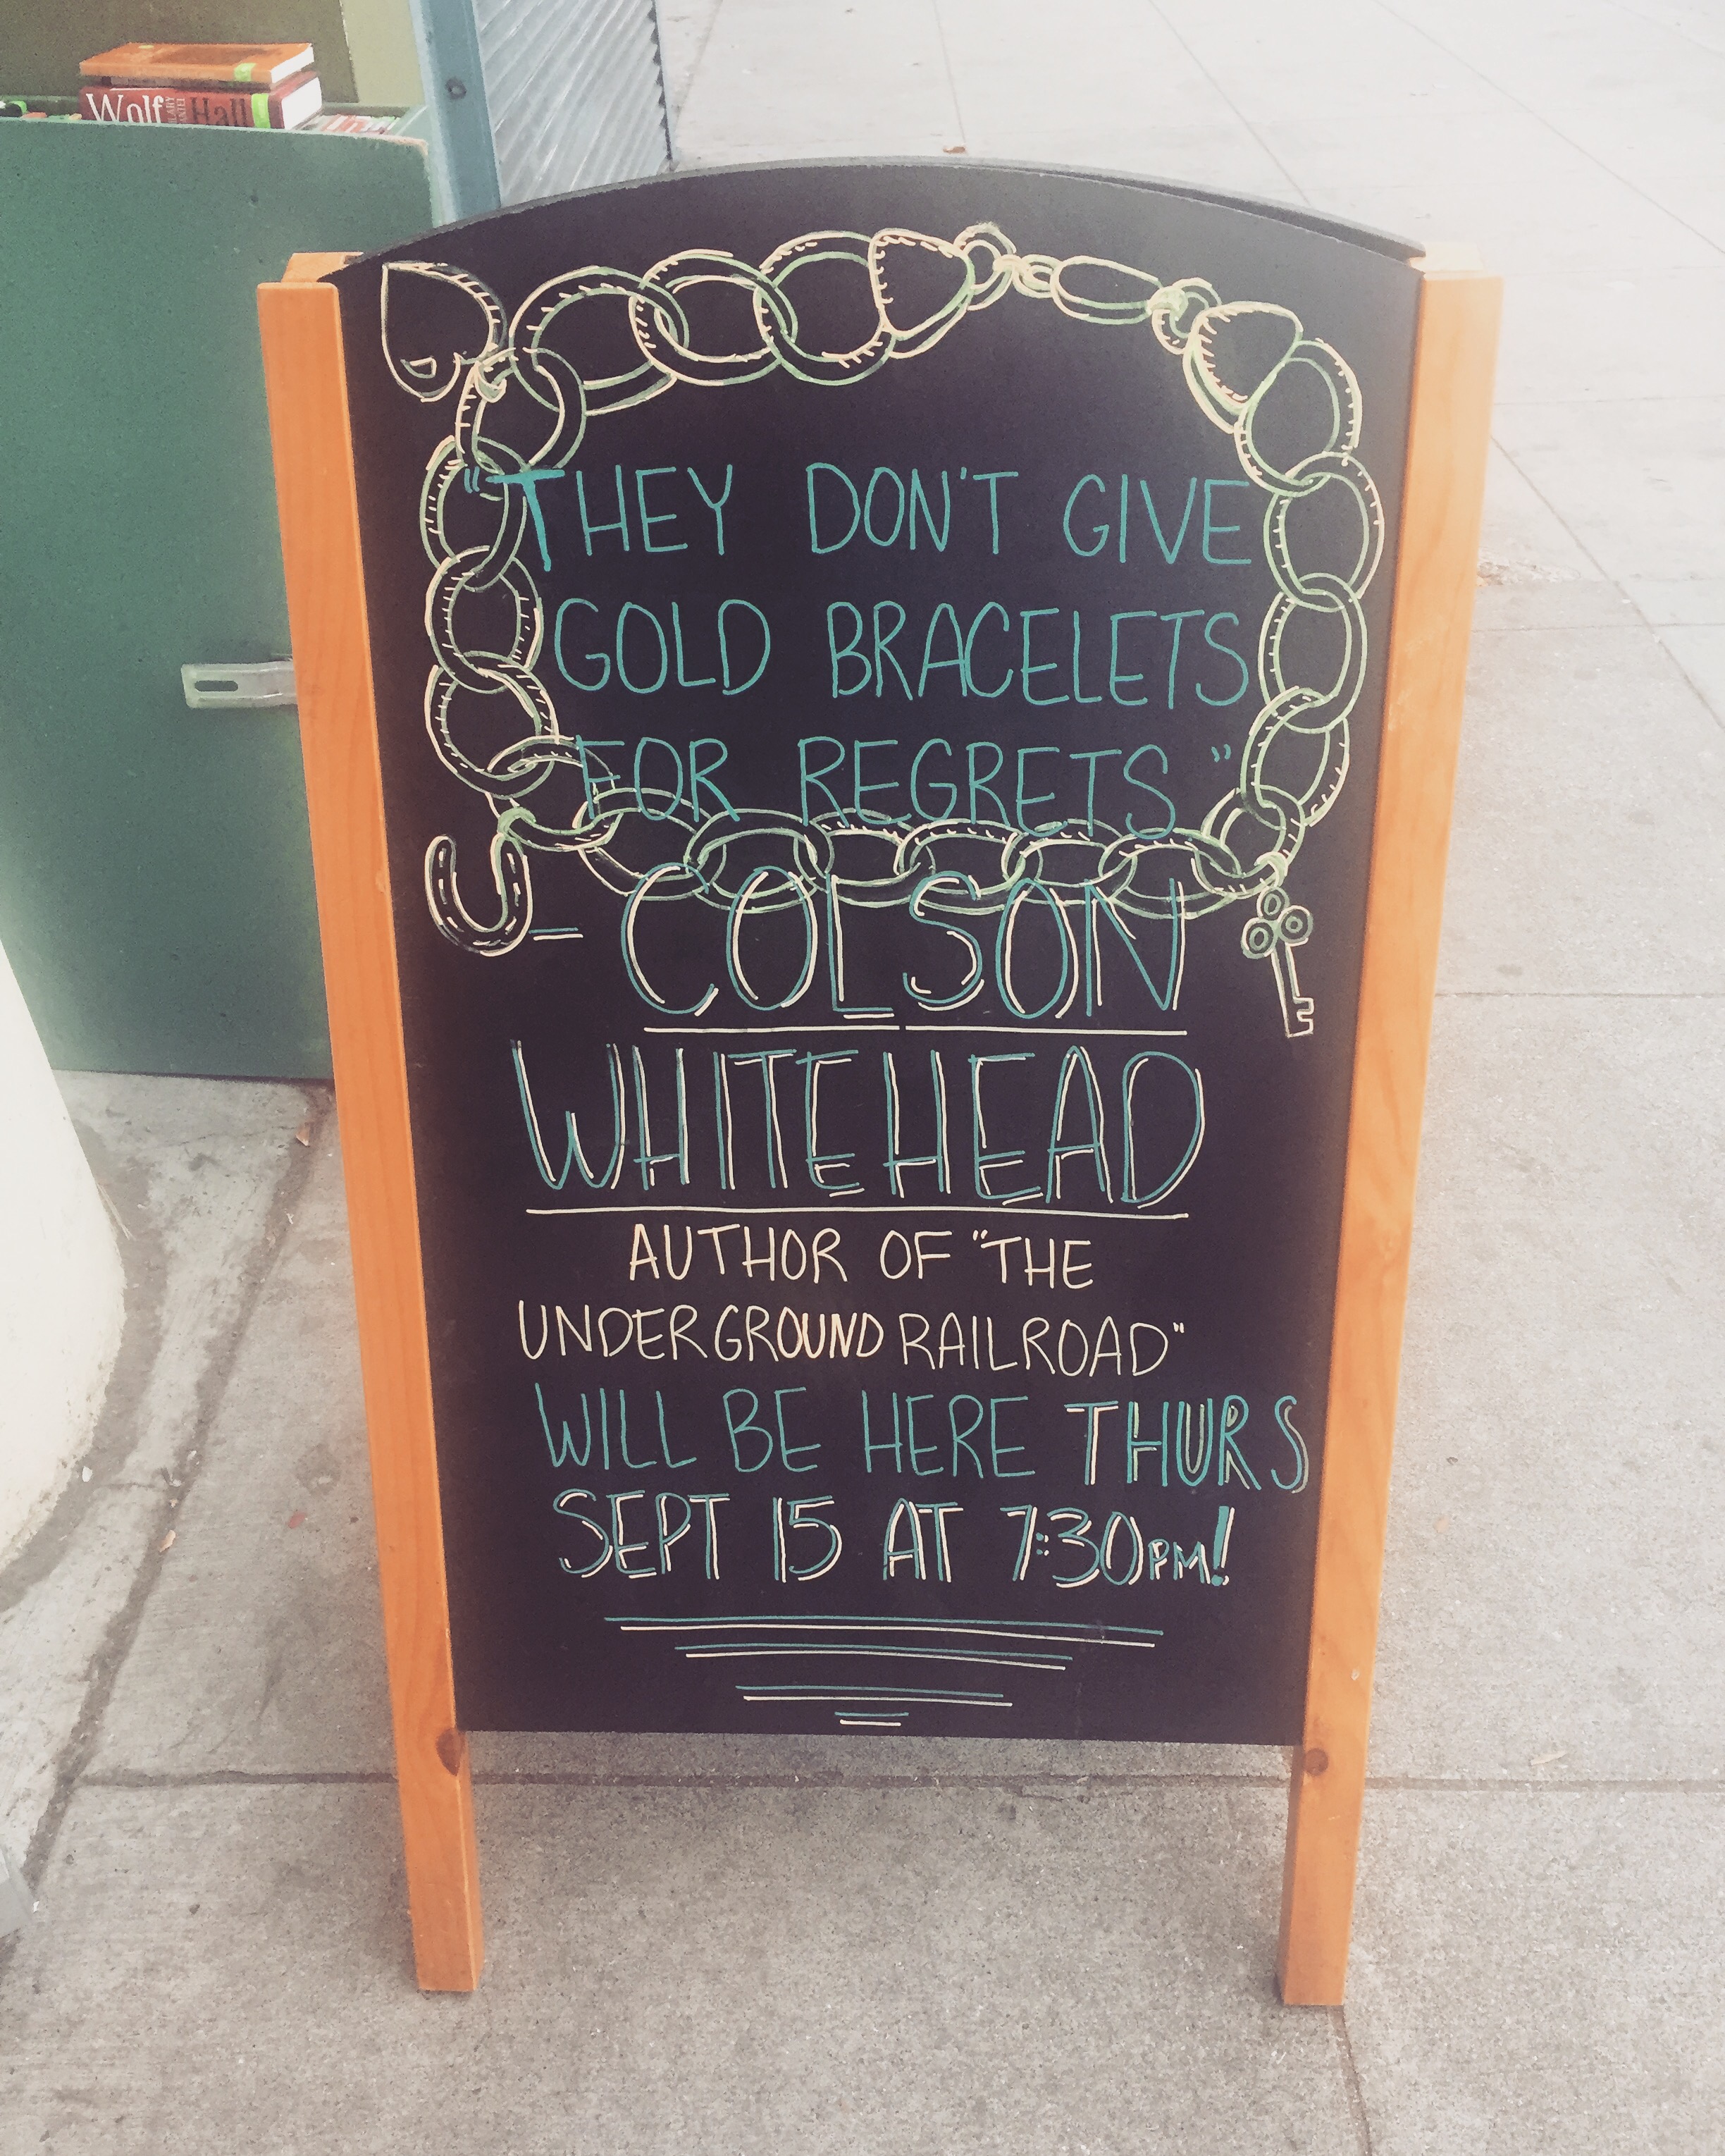 Wolf Hall
"THEY DON'T GIVE
GOLD BRACELETS
FOR REGRETS"
- COLSON
WHITEHEAD
AUTHOR OF "THE
UNDERGROUND RAILROAD"
WILL BE HERE THURS
SEPT 15 AT 7:30PM!